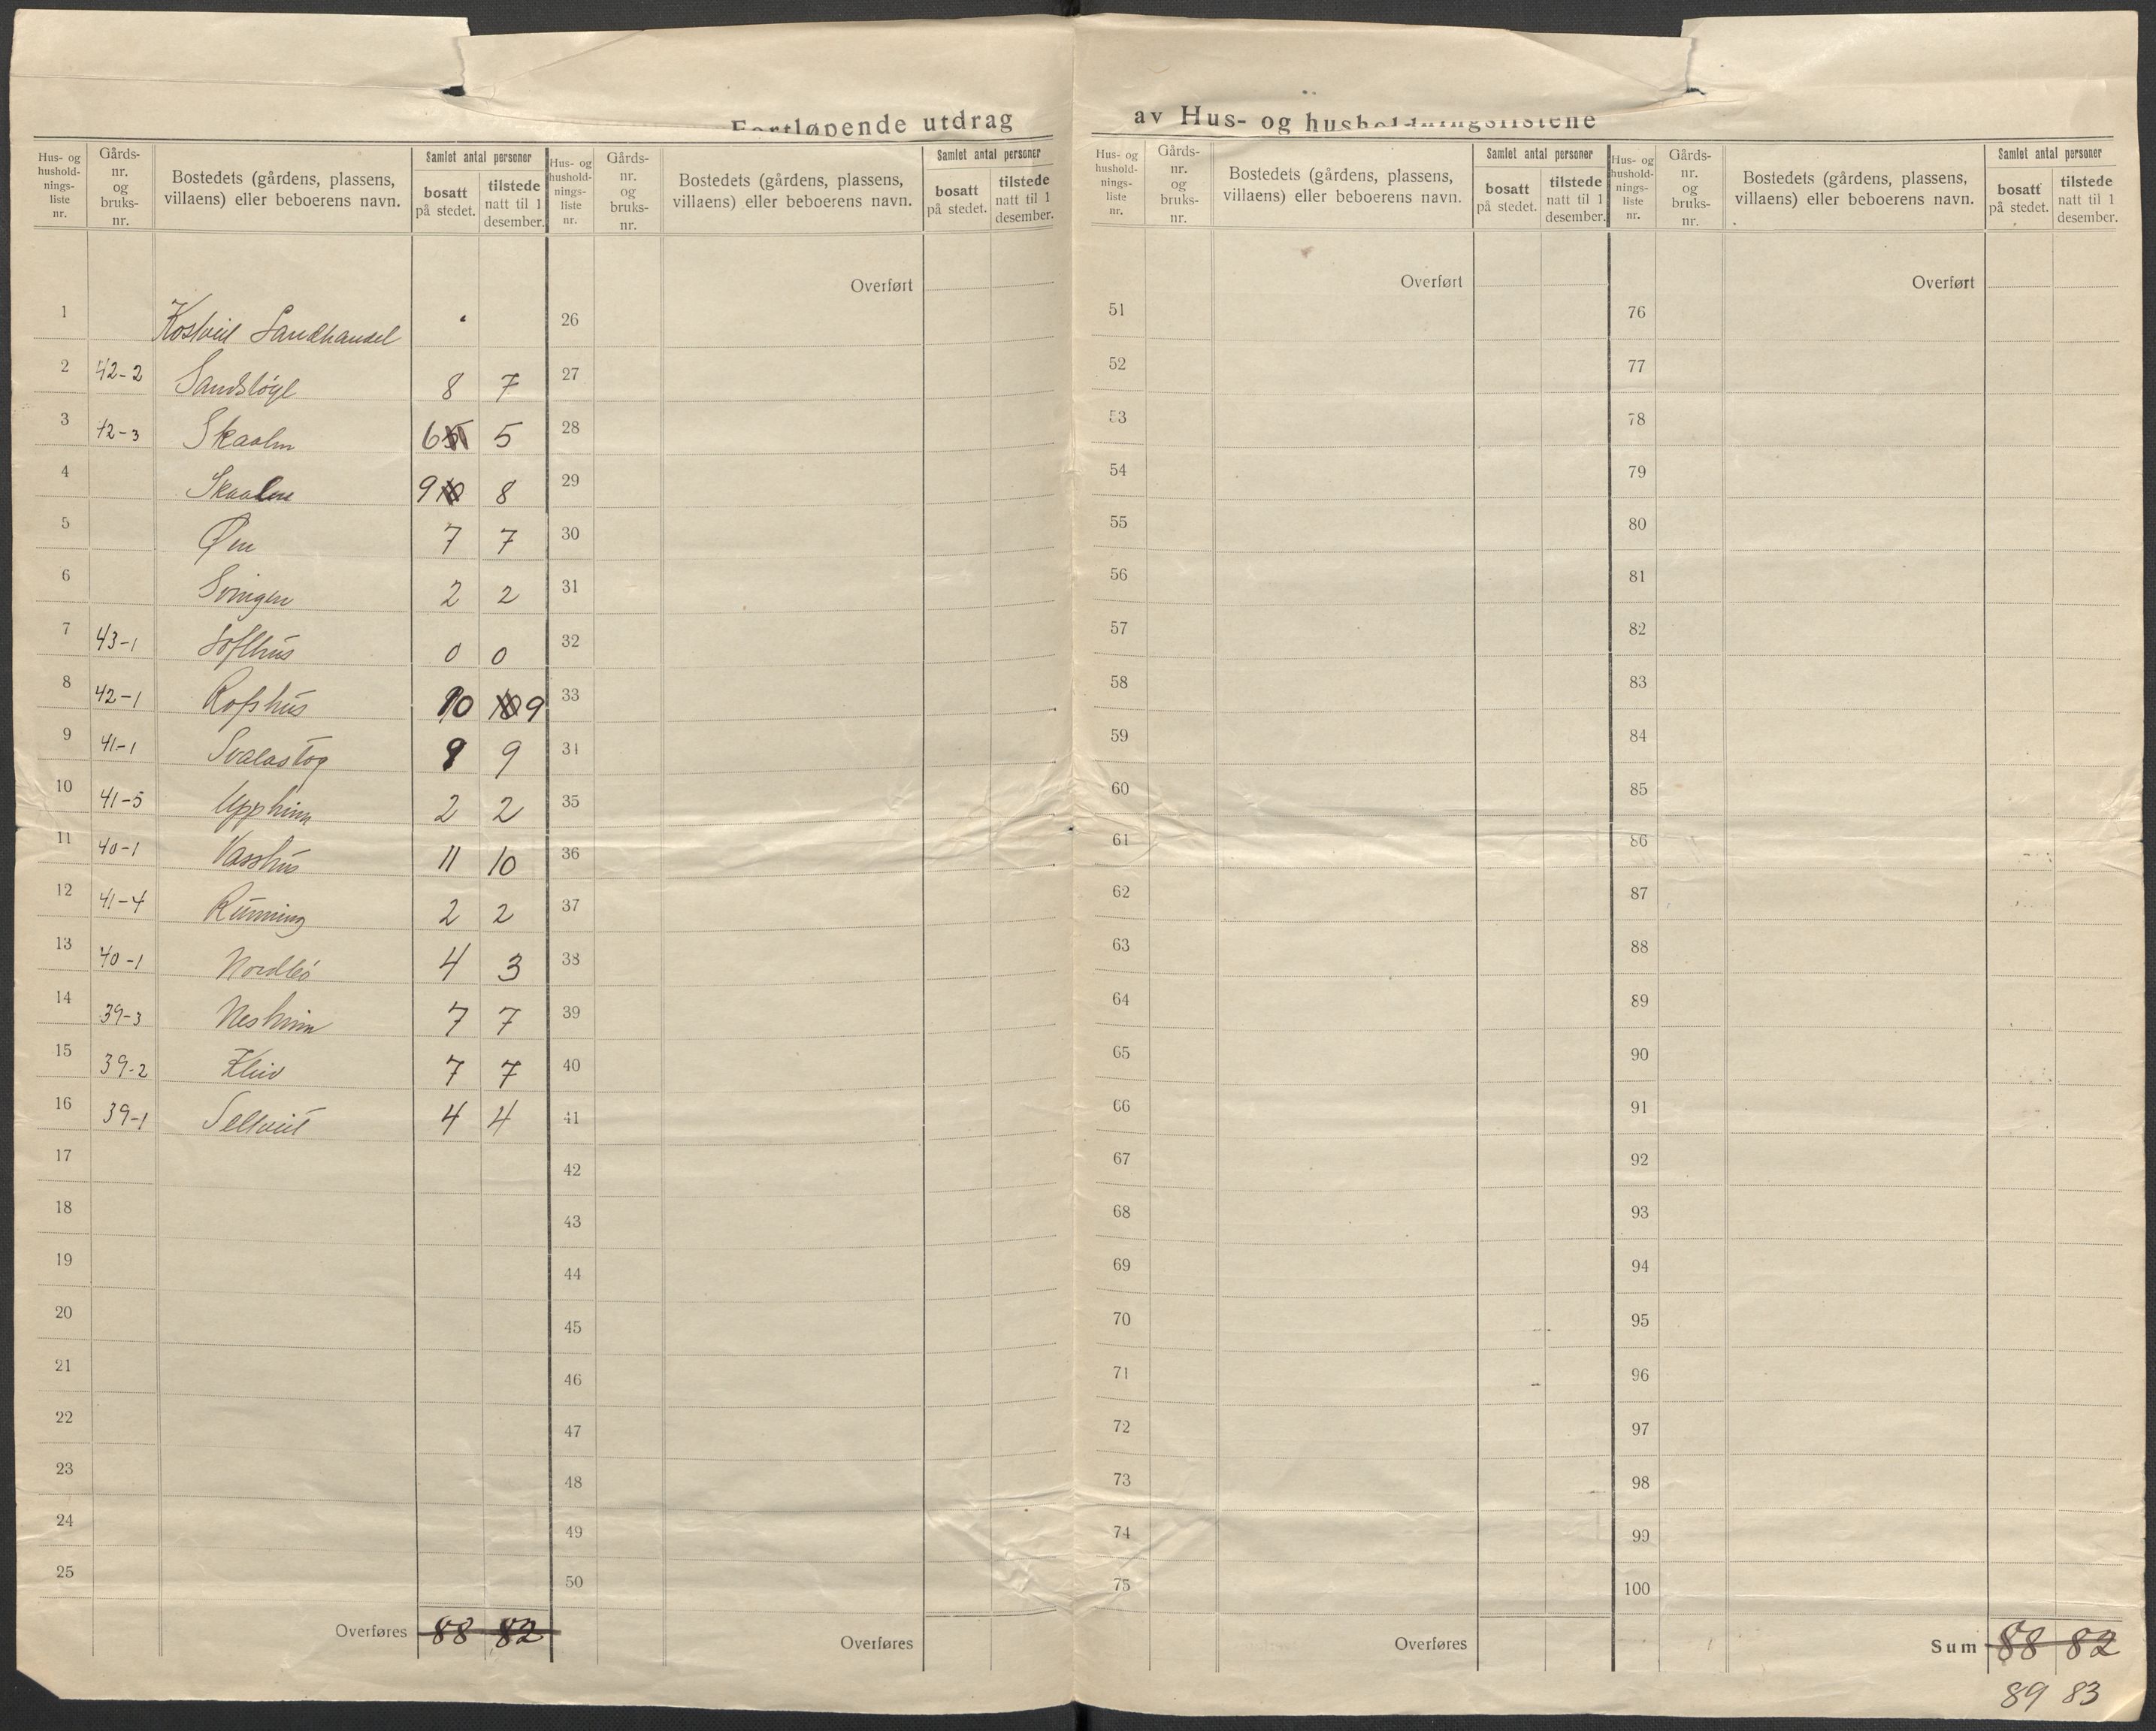 Fortløpende utdrag av Hus- og husholdningslistene
Hus- og husholdnings-liste nr. Gårds-nr. og bruks-nr. Bostedets (gårdens, plassens, villaens) eller beboerens navn. Samlet antal personer bosatt på stedet. tilstede natt til 1 desember.
Hus- og husholdnings-liste nr. Gårds-nr. og bruks-nr. Bostedets (gårdens, plassens, villaens) eller beboerens navn. Samlet antal personer bosatt på stedet. tilstede natt til 1 desember.
Hus- og husholdnings-liste nr. Gårds-nr. og bruks-nr. Bostedets (gårdens, plassens, villaens) eller beboerens navn. Samlet antal personer bosatt på stedet. tilstede natt til 1 desember.
Hus- og husholdnings-liste nr. Gårds-nr. og bruks-nr. Bostedets (gårdens, plassens, villaens) eller beboerens navn. Samlet antal personer bosatt på stedet. tilstede natt til 1 desember.
1 Kostveit Landhandel
2 42-2 Sandsløyt 8 7
3 42-3 Skaalm 6 5
4 Skaalen 9 8
5 Øen 7 7
6 Svingen 2 2
7 43-1 Lofthus 0 0
8 42-1 Rofshus 10 9
9 41-1 Svalastog 9 9
10 41-5 Uppheim 2 2
11 40-1 Vasshus 11 10
12 41-4 Running 2 2
13 40-1 Nordbø 4 3
14 39-3 Nesheim 7 7
15 39-2 Kleiv 7 7
16 39-1 Selltveit 4 4
17
18
19
20
21
22
23
24
25
Overføres 88 82
Overført
26
27
28
29
30
31
32
33
34
35
36
37
38
39
40
41
42
43
44
45
46
47
48
49
50
Overføres
Overført
51
52
53
54
55
56
57
58
59
60
61
62
63
64
65
66
67
68
69
70
71
72
73
74
75
Overføres
Overført
76
77
78
79
80
81
82
83
84
85
86
87
88
89
90
91
92
93
94
95
96
97
98
99
100
Sum 88 82
89 83